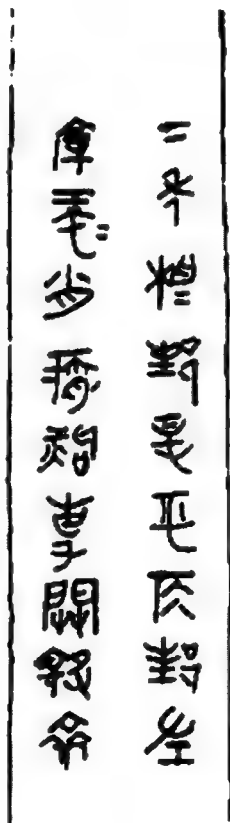 二年相邦春平侯邦左
庫工師肖瘠冶事開執齊